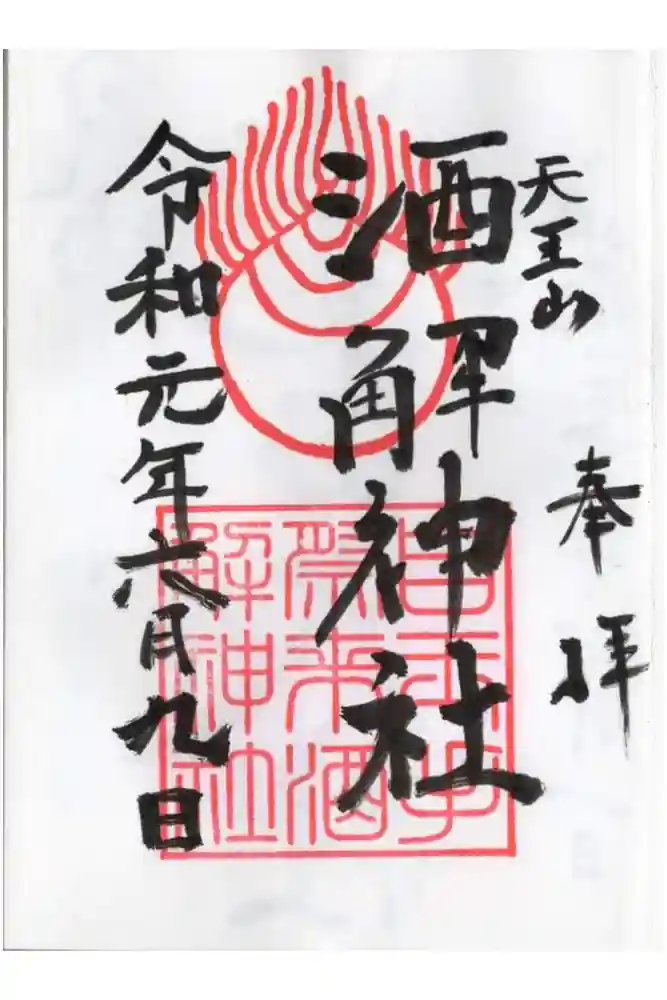 奉拝
天王山
酒解神社
令和元年六月九日
自玉手
祭来酒
解神社